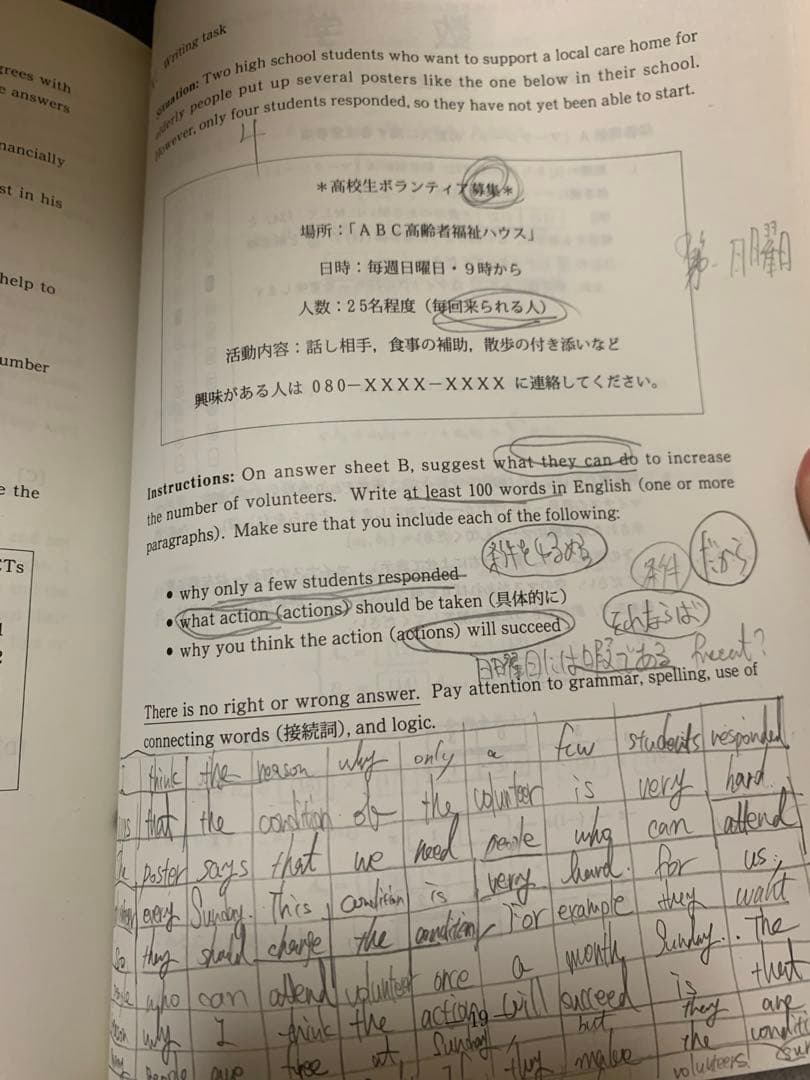 grees with
e answers
nancially
st in his
help to
umber
e the
CTs
Writing task
Situation: Two high school students who want to support a local care home for
elderly people put up several posters like the one below in their school.
However, only four students responded, so they have not yet been able to start.
4
＊高校生ボランティア募集＊
場所：「ＡＢＣ高齢者福祉ハウス」
日時：毎週日曜日・９時から
人数：２５名程度（毎回来られる人）
活動内容：話し相手，食事の補助，散歩の付き添いなど
興味がある人は ０８０－ＸＸＸＸ－ＸＸＸＸ に連絡してください。
第 日曜日
Instructions: On answer sheet B, suggest what they can do to increase
the number of volunteers. Write at least 100 words in English (one or more
paragraphs). Make sure that you include each of the following:
条件をゆるめる
• why only a few students responded
条件 だから
• what action (actions) should be taken (具体的に)
それならば
• why you think the action (actions) will succeed
日曜日には暇である
There is no right or wrong answer. Pay attention to grammar, spelling, use of
connecting words (接続詞), and logic.
I think the reason why only a few students responded
is that the condition of the volunteer is very hard.
The poster says that we need people who can attend
every Sunday. This condition is very hard for us,
So they should change the condition. For example they want
people who can attend volunteer once a month, Sunday. The
reason why I think the action will succeed is that
19
people are free at Sunday, but they make the condition
volunteers